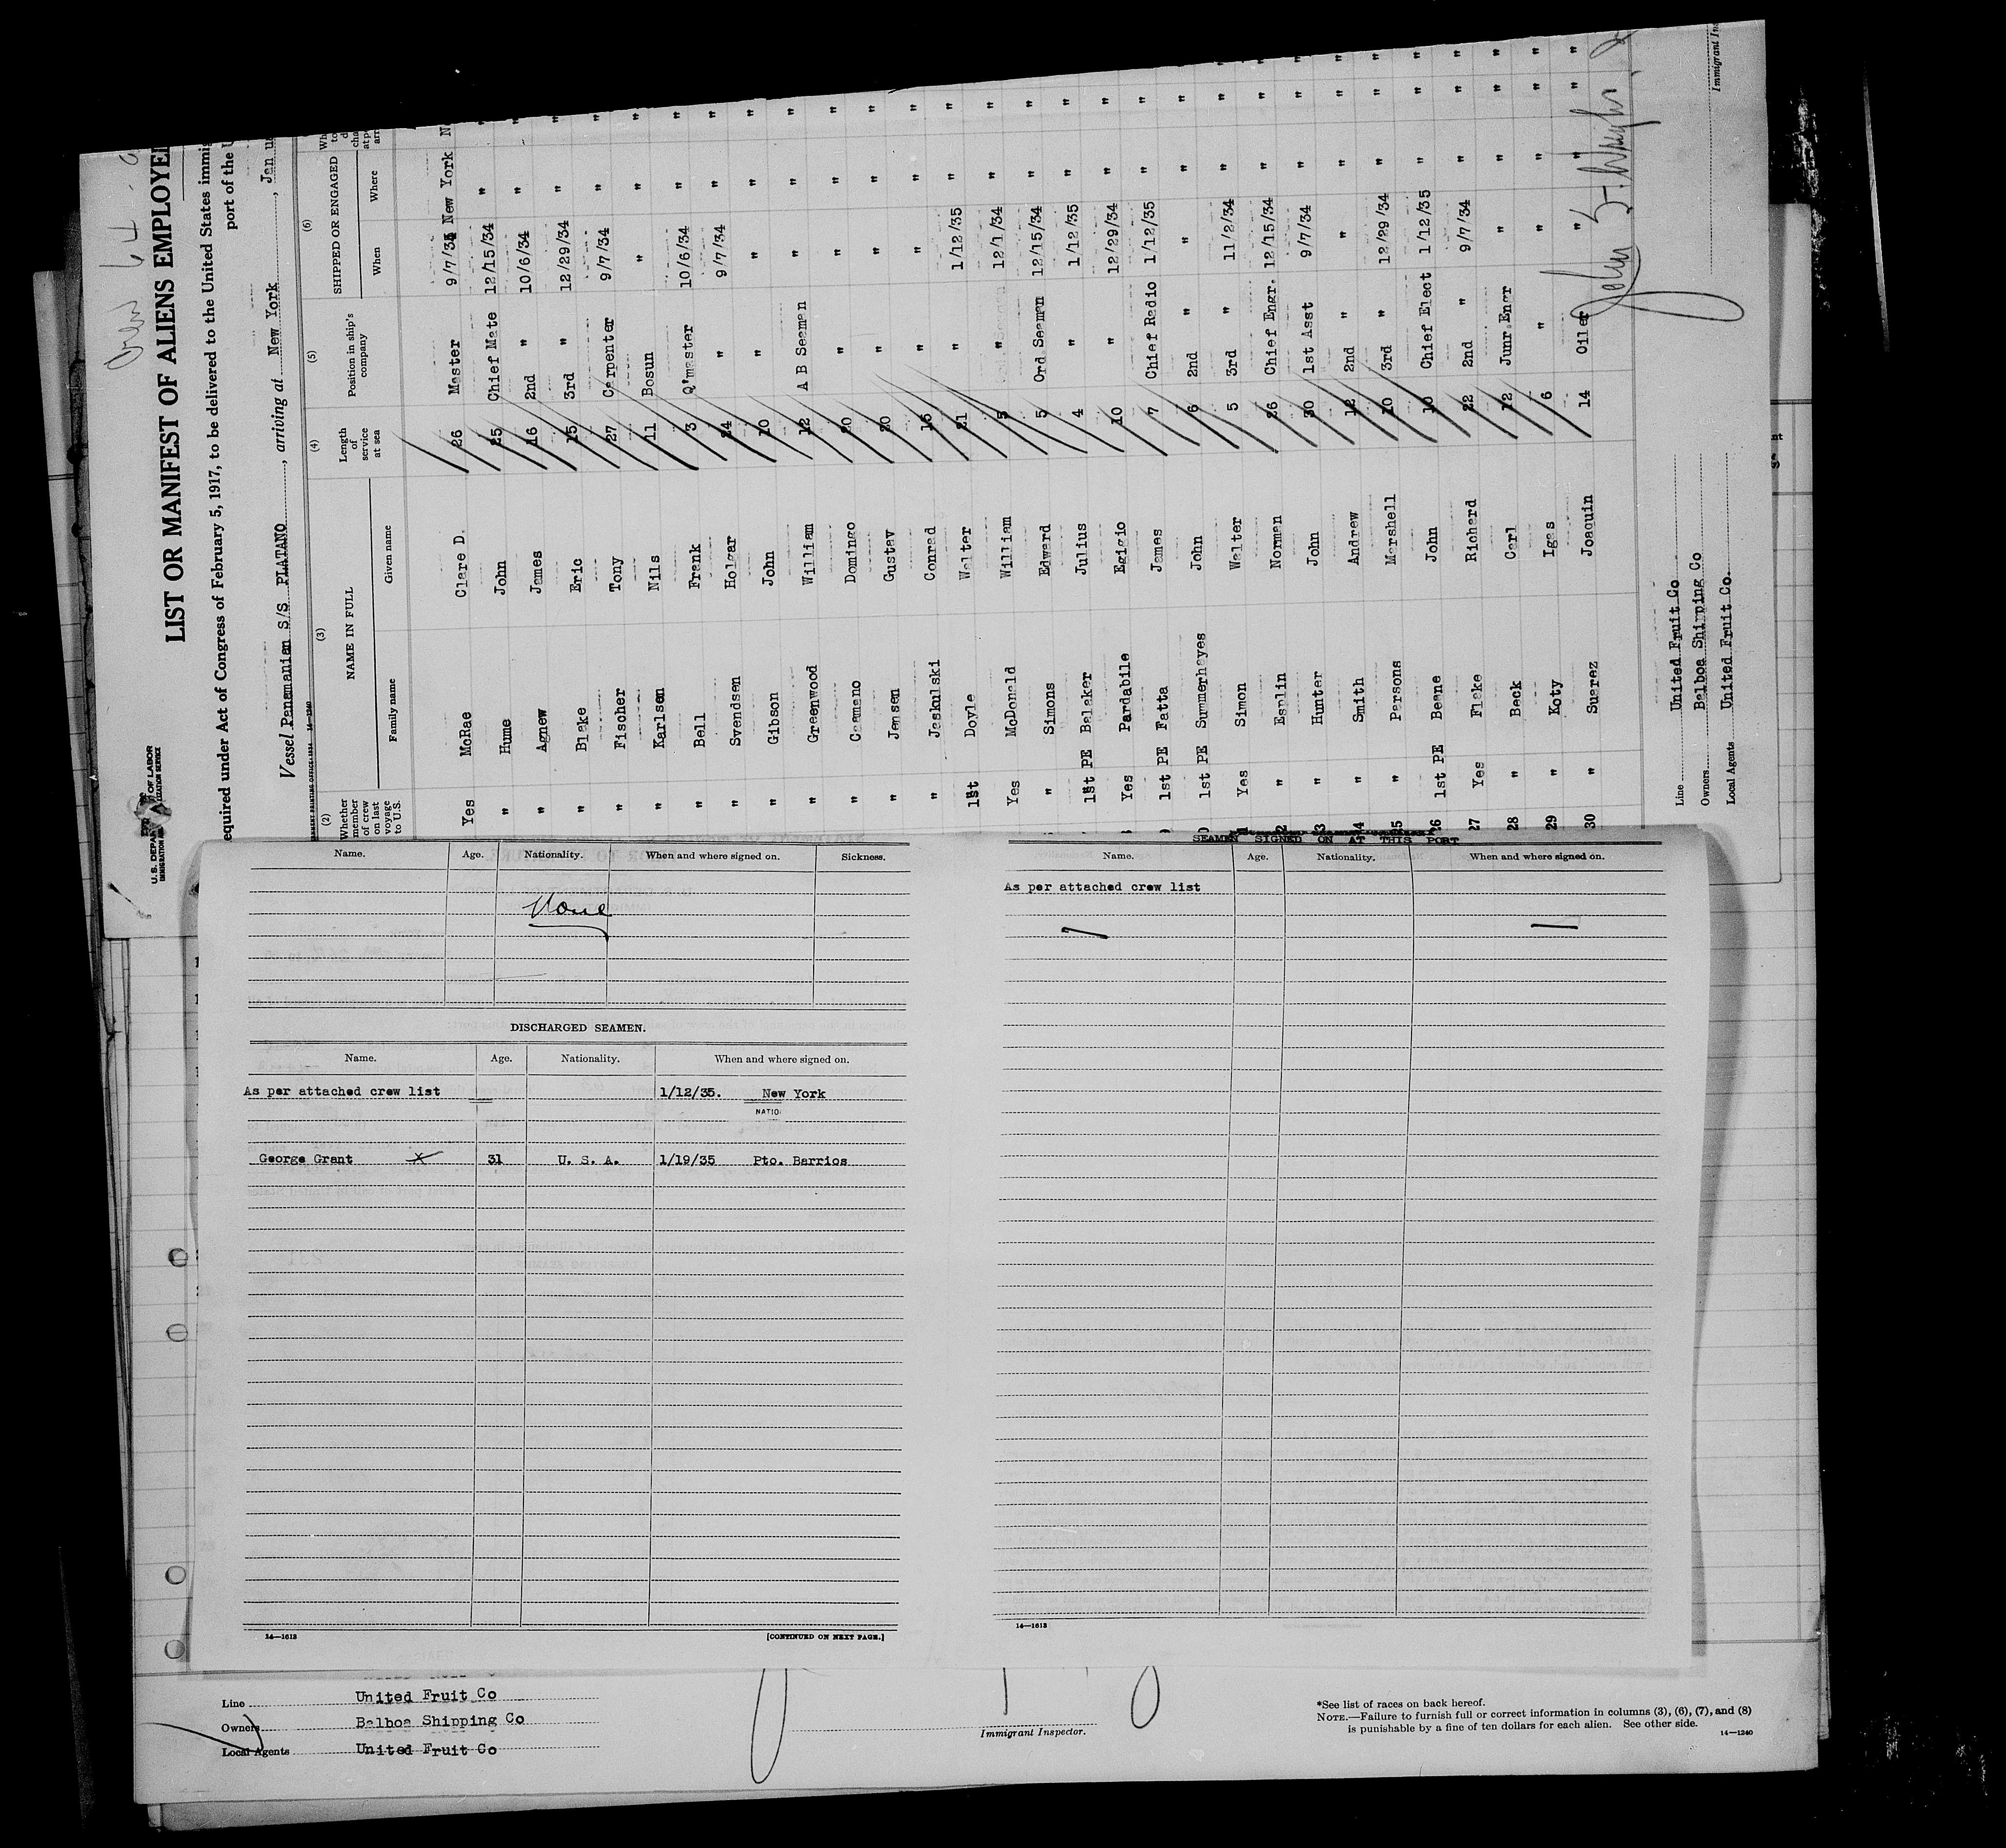 Crew
LIST OR MANIFEST OF ALIENS EMPLOYE
equired under Act of Congress of February 5, 1917, to be delivered to the United States immig
port of the U
U. S. DEPAR OF LABOR
Vessel Panamanian S/S PLATANO, arriving at New York, Janua
(2) (3) (4) (5) (6)
Whether member of crew on last voyage to U.S. NAME IN FULL Length of service at sea Position in ship's company SHIPPED OR ENGAGED
Family name Given name When Where
Yes McRae Clare D. 26 Master 9/7/34 New York
" Hume John 25 Chief Mate 12/15/34 "
" Agnew James 16 2nd " 10/6/34 "
" Blake Eric 15 3rd " 12/29/34 "
" Fischer Tony 27 Carpenter 9/7/34 "
" Karlsen Nils 11 Bosun " "
" Bell Frank 3 Q'master 10/6/34 "
" Svendsen Holgar 24 " 9/7/34 "
" Gibson John 10 " " "
" Greenwood William 12 A B Seaman " "
" Caamano Domingo 20 " " "
" Jensen Gustav 20 " " "
" Jaskulski Conrad 15 " " "
1st Doyle Walter 21 " 1/12/35 "
Yes McDonald William 5 " 12/1/34 "
" Simons Edward 5 Ord Seaman 12/15/34 "
1st PE Belaker Julius 4 " 1/12/35 "
Yes Pardabile Egigio 10 " 12/29/34 "
1st PE Fatta James 7 Chief Radio 1/12/35 "
1st PE Summerhayes John 6 2nd " " "
Yes Simon Walter 5 3rd " 11/2/34 "
" Esplin Norman 26 Chief Engr. 12/15/34 "
" Hunter John 30 1st Asst 9/7/34 "
" Smith Andrew 12 2nd " " "
" Parsons Marshall 10 3rd " 12/29/34 "
26 1st PE Beane John 10 Chief Elect 1/12/35 "
27 Yes Flake Richard 22 2nd " 9/7/34 "
28 " Beck Carl 12 Junr Engr " "
29 " Koty Igas 6 " " "
30 " Suarez Joaquin 14 Oiler " "
Line United Fruit Co
Owners Balboa Shipping Co
Local Agents United Fruit Co.
Immigrant In
Name. Age. Nationality. When and where signed on. Sickness.
None
DISCHARGED SEAMEN.
Name. Age. Nationality. When and where signed on.
As per attached crew list 1/12/35. New York
NATIO
George Grant X 31 U. S. A. 1/19/35 Pto. Barrios
14—1613 [CONTINUED ON NEXT PAGE.]
SEAMEN SIGNED ON AT THIS PORT
Name. Age. Nationality. When and where signed on.
As per attached crew list
14—1613
Line United Fruit Co
Owners Balboa Shipping Co
Local Agents United Fruit Co
Immigrant Inspector.
*See list of races on back hereof.
NOTE.—Failure to furnish full or correct information in columns (3), (6), (7), and (8)
is punishable by a fine of ten dollars for each alien. See other side.
14—1240